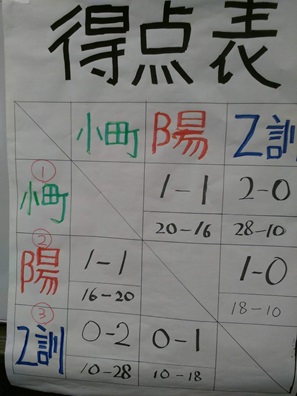 得点表
小町 陽 乙訓
① 小町 1-1 2-0
20-16 28-10
② 陽 1-1 1-0
16-20 18-10
③ 乙訓 0-2 0-1
10-28 10-18